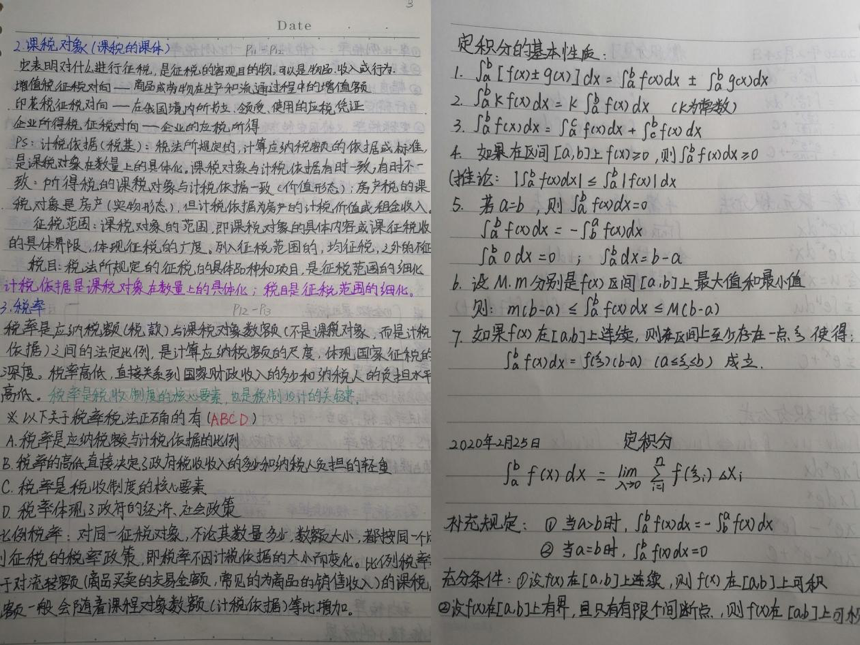 3
Date
2.课税对象(课税的客体) P11-P12
它表明对什么进行征税,是征税的客观目的物,可以是物品、收入或行为.
增值税征税对向——商品或劳物在生产和流通过程中的增值额
印花税征税对向——在我国境内所书立、领受、使用的应税凭证
企业所得税征税对向——企业的应税所得
PS:计税依据(税基):税法所规定的,计算应纳税额的依据或标准,
是课税对象在数量上的具体化。课税对象与计税依据有时一致,有时不一
致。所得税的课税对象与计税依据一致(价值形态);房产税的课
税对象是房产(实物形态),但计税依据为房产的计税价值或租金收入。
征税范围:课税对象的范围,即课税对象的具体内容或课征税收
的具体界限,体现征税的广度。列入征税范围的,均征税,之外的不征
税目:税法所规定的征税的具体品种和项目,是征税范围的细化
计税依据是课税对象在数量上的具体化;税目是征税范围的细化。
3.税率 P12-P13
税率是应纳税额(税款)与课税对象数额(不是课税对象,而是计税
依据)之间的法定比例,是计算应纳税额的尺度,体现国家征税的
深度。税率高低,直接关系到国家财政收入的多少和纳税人的负担水平
高低。税率是税收制度的核心要素,也是税制设计的关键.
※以下关于税率税法正确的有(ABCD)
A.税率是应纳税额与计税依据的比例
B.税率的高低直接决定了政府税收收入的多少和纳税人负担的轻重
C.税率是税收制度的核心要素
D.税率体现了政府的经济、社会政策
比例税率:对同一征税对象,不论其数量多少,数额大小,都按同一个
征税的税率政策,即税率不因计税依据的大小而变化。比例税率
于对流转额(商品买卖的交易金额,常见的为商品的销售收入)的课税,
额一般会随着课程对象数额(计税依据)等比增加。
定积分的基本性质:
1. ∫ₐᵇ[f(x)±g(x)]dx = ∫ₐᵇf(x)dx ± ∫ₐᵇg(x)dx
2. ∫ₐᵇkf(x)dx = k∫ₐᵇf(x)dx (k为常数)
3. ∫ₐᵇf(x)dx = ∫ₐᶜf(x)dx + ∫_c^b f(x)dx
4. 如果在区间[a,b]上f(x)≥0,则∫ₐᵇf(x)dx≥0
(推论: |∫ₐᵇf(x)dx| ≤ ∫ₐᵇ|f(x)|dx
5. 若a=b,则∫ₐᵇf(x)dx=0
∫ₐᵇf(x)dx = -∫_b^a f(x)dx
∫ₐᵇ0dx=0 ; ∫ₐᵇdx=b-a
6. 设M.m分别是f(x)区间[a.b]上最大值和最小值
则: m(b-a) ≤ ∫ₐᵇf(x)dx ≤ M(b-a)
7. 如果f(x)在[a,b]上连续,则在区间上至少存在一点ξ,使得:
∫ₐᵇf(x)dx = f(ξ)(b-a) (a≤ξ≤b) 成立.
2020年2月25日 定积分
∫ₐᵇ f(x)dx = lim_{λ→0} Σ_{i=1}^n f(ξᵢ)△Xᵢ
补充规定: ① 当a>b时,∫ₐᵇf(x)dx=-∫_b^a f(x)dx
② 当a=b时,∫ₐᵇf(x)dx=0
充分条件:①设f(x)在[a,b]上连续,则f(x)在[a,b]上可积
②设f(x)在[a,b]上有界,且只有有限个间断点,则f(x)在[a,b]上可积